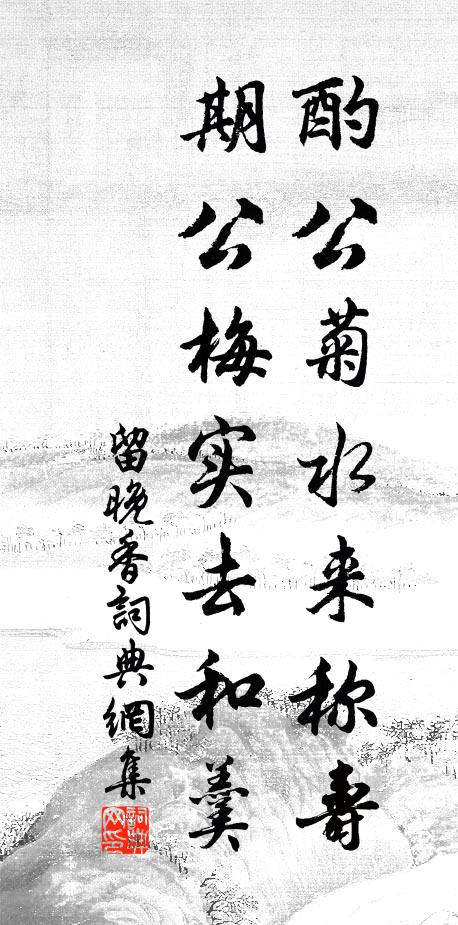 酌公菊水来称寿
期公梅实去和羹
留晚香詞典網集